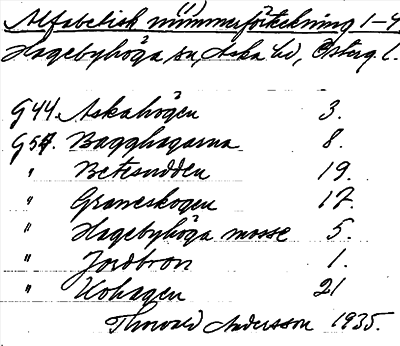 Alfabetisk nummerförteckning 1-
Hagebyhöga sn, Aska hd, Österg. l.
G44. Askahögen 3.
G54. Bagghagarna 8.
" Betesudden 19.
" Graneskogen 17.
" Hagebyhöga mosse 5.
" Jordbron 1.
" Kohagen 21
Thorvald Andersson 1935.